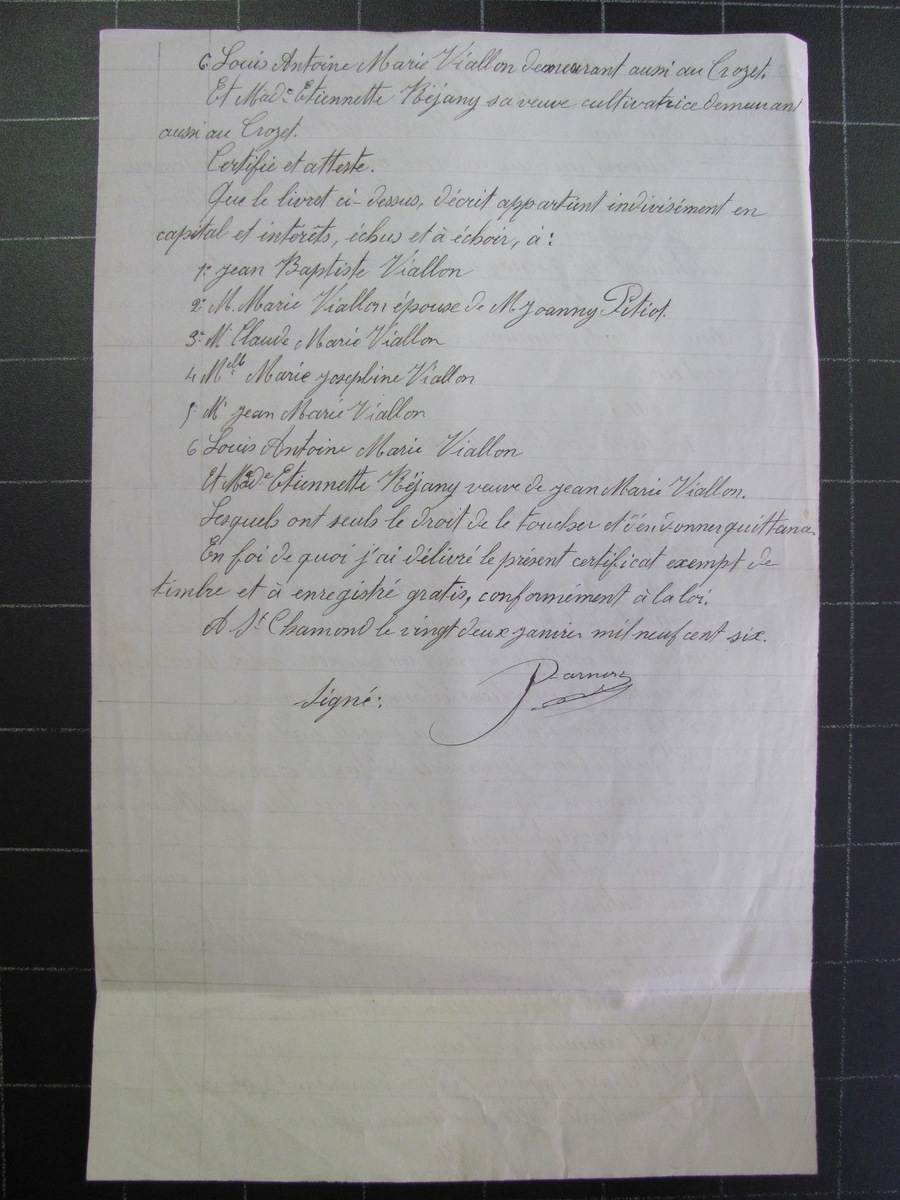 6° Louis Antoine Marie Viallon demeurant aussi au Crozet.
Et Mad.e Etiennette Réjany sa veuve cultivatrice demeurant
aussi au Crozet.
Certifie et atteste.
Que le livret ci-dessus, décrit appartient indivisément en
capital et intérêts, échus et à échoir, à :
1° Jean Baptiste Viallon
2° M. Marie Viallon épouse de M Joanny Pitiot.
3° Mr Claude Marie Viallon
4 Melle Marie Joséphine Viallon
5° Mr Jean Marie Viallon
6 Louis Antoine Marie Viallon
Et Made Etiennette Réjany veuve de Jean Marie Viallon.
Lesquels ont seuls le droit de le toucher et d'en donner quittance
En foi de quoi j'ai délivré le présent certificat exempt de
timbre et à enregistré gratis, conformément à la loi.
A St Chamond le vingt deux janvier mil neuf cent six.
Signé :